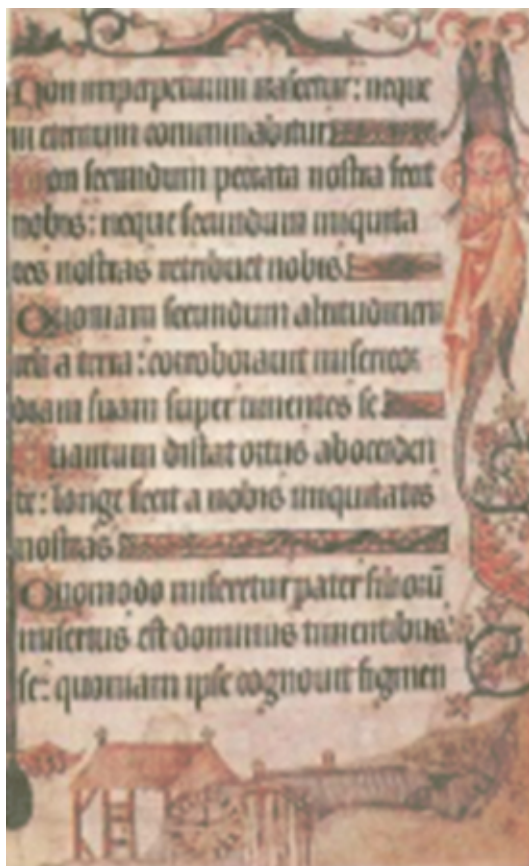 Non imperpetuum irascetur: neque
in eternum comminabitur
Non secundum peccata nostra fecit
nobis: neque secundum iniquita
tes nostras retribuet nobis.
Quoniam secundum altitudinem
celi a terra: corroboravit misericor
diam suam super timentes se
Quantum distat ortus ab occiden
te: longe fecit a nobis iniquitates
nostras
Quomodo miseretur pater filiorū
misertus est dominus timentibus
se: quoniam ipse cognouit figmen